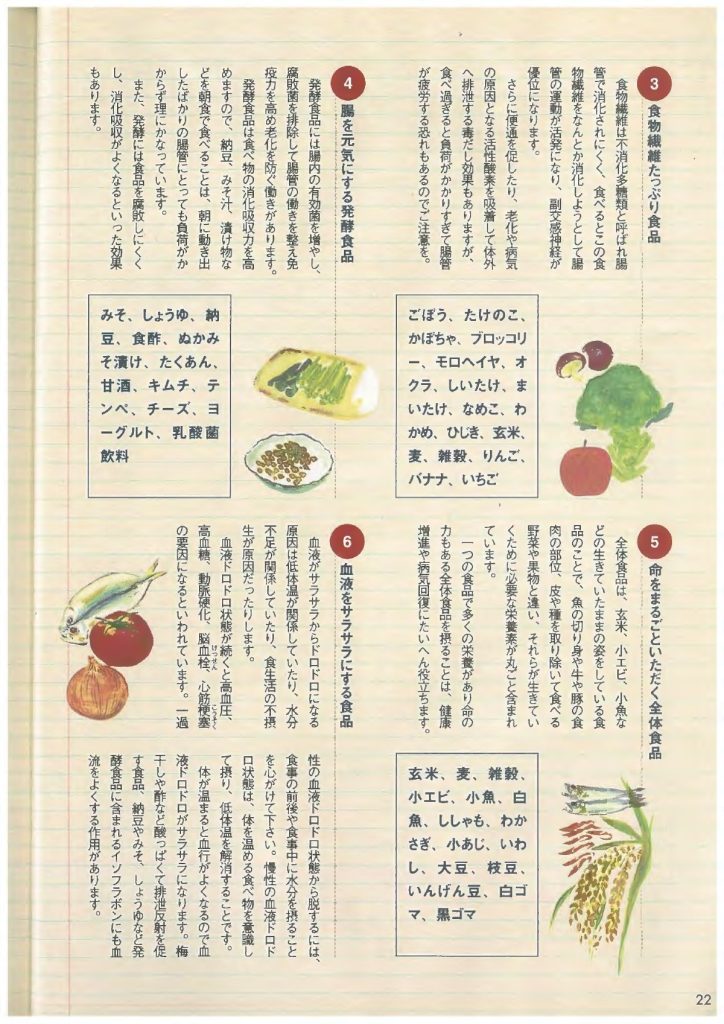 3 食物繊維たっぷり食品
食物繊維は不消化多糖類と呼ばれ腸
管で消化されにくく、食べるとこの食
物繊維をなんとか消化しようとして腸
管の運動が活発になり、副交感神経が
優位になります。
さらに便通を促したり、老化や病気
の原因となる活性酸素を吸着して体外
へ排泄する毒だし効果もありますが、
食べ過ぎると負荷がかかりすぎて腸管
が疲労する恐れもあるのでご注意を。
ごぼう、たけのこ、
かぼちゃ、ブロッコリ
ー、モロヘイヤ、オ
クラ、しいたけ、ま
いたけ、なめこ、わ
かめ、ひじき、玄米、
麦、雑穀、りんご、
バナナ、いちご
4 腸を元気にする発酵食品
発酵食品には腸内の有効菌を増やし、
腐敗菌を排除して腸管の働きを整え免
疫力を高め老化を防ぐ働きがあります。
発酵食品は食べ物の消化吸収力を高
めますので、納豆、みそ汁、漬け物な
どを朝食で食べることは、朝に動き出
したばかりの腸管にとっても負荷がか
からず理にかなっています。
また、発酵には食品を腐敗しにくく
し、消化吸収がよくなるといった効果
もあります。
みそ、しょうゆ、納
豆、食酢、ぬかみ
そ漬け、たくあん、
甘酒、キムチ、テ
ンペ、チーズ、ヨ
ーグルト、乳酸菌
飲料
5 命をまるごといただく全体食品
全体食品は、玄米、小エビ、小魚な
どの生きていたままの姿をしている食
品のことで、魚の切り身や牛や豚の食
肉の部位、皮や種を取り除いて食べる
野菜や果物と違い、それらが生きてい
くために必要な栄養素が丸ごと含まれ
ています。
一つの食品で多くの栄養があり命の
力もある全体食品を摂ることは、健康
増進や病気回復にたいへん役立ちます。
玄米、麦、雑穀、
小エビ、小魚、白
魚、ししゃも、わか
さぎ、小あじ、いわ
し、大豆、枝豆、
いんげん豆、白ゴ
マ、黒ゴマ
6 血液をサラサラにする食品
血液がサラサラからドロドロになる
原因は低体温が関係していたり、水分
不足が関係していたり、食生活の不摂
生が原因だったりします。
血液ドロドロ状態が続くと高血圧、
高血糖、動脈硬化、脳血栓、心筋梗塞
けっせん こうそく
の要因になるといわれています。一過
性の血液ドロドロ状態から脱するには、
食事の前後や食事中に水分を摂ること
を心がけて下さい。慢性の血液ドロド
ロ状態は、体を温める食べ物を意識し
て摂り、低体温を解消することです。
体が温まると血行がよくなるので血
液ドロドロがサラサラになります。梅
干しや酢など酸っぱくて排泄反射を促
す食品、納豆やみそ、しょうゆなど発
酵食品に含まれるイソフラボンにも血
流をよくする作用があります。
22